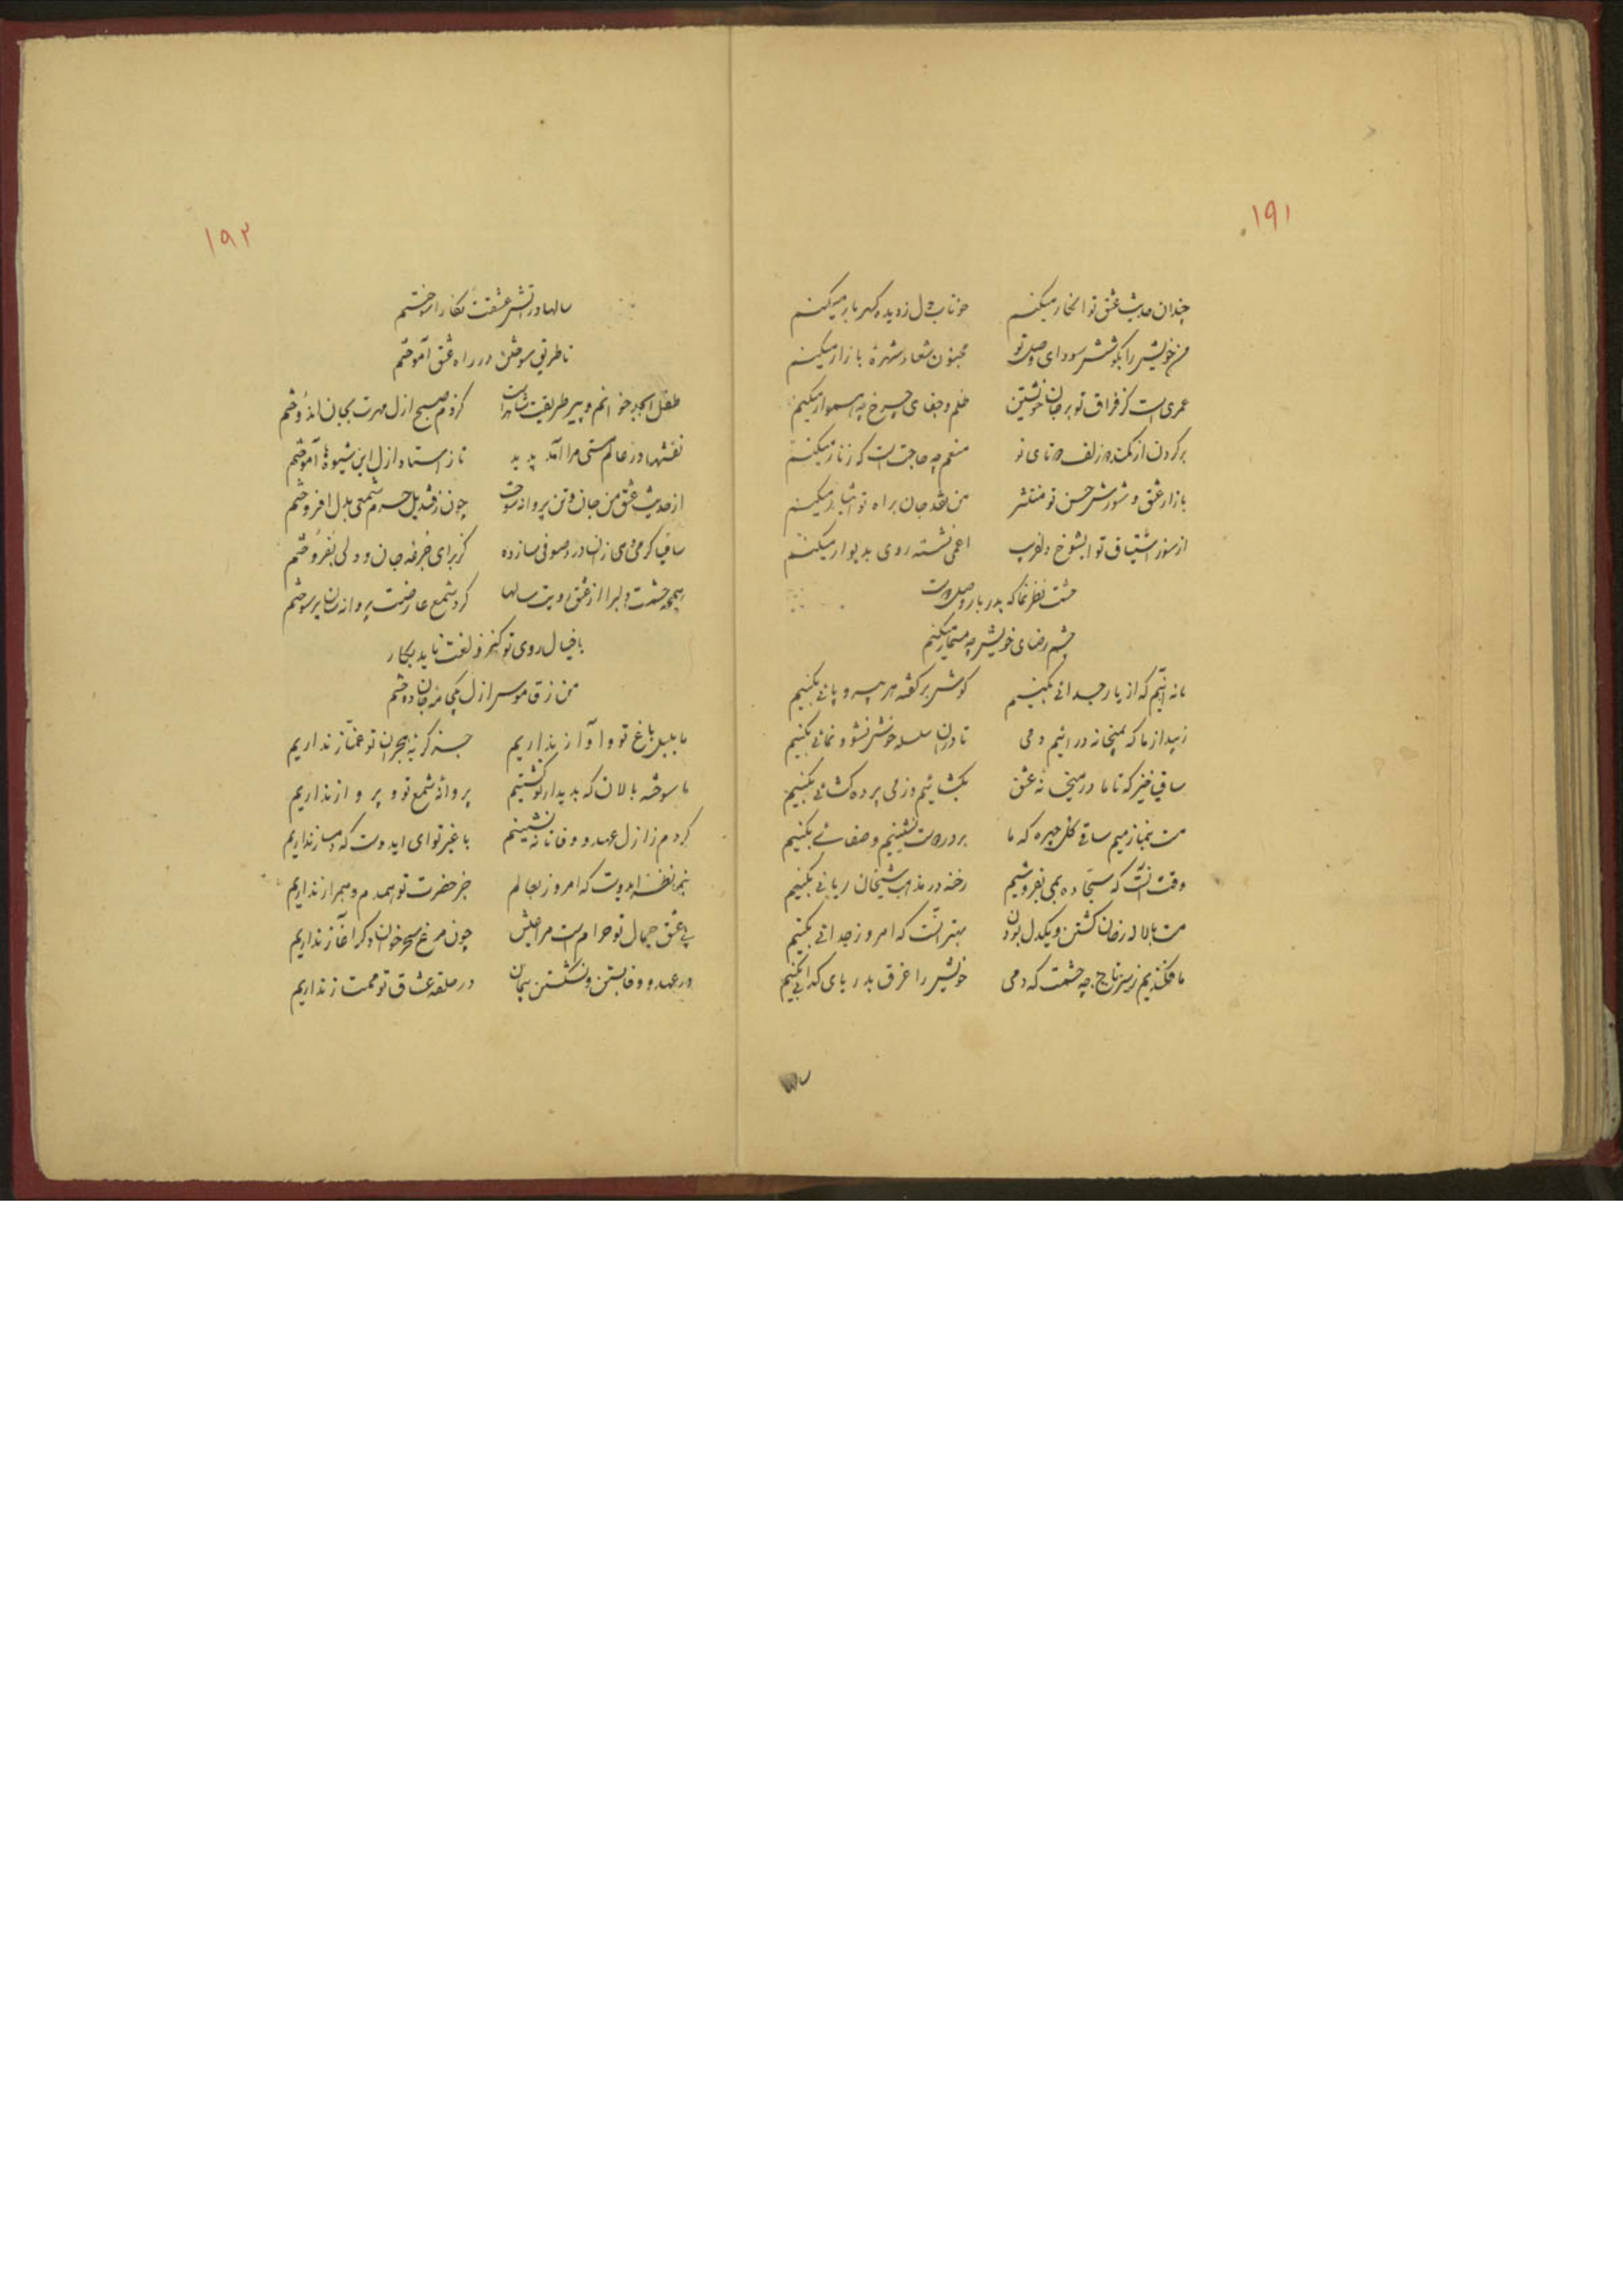 ۱۹۱
چندان حدیث عشق تو انکار میکنم خوناب دل ز دیده گهربار میکنم
من خویش را بکوشش سودای وصل تو مجنون شعار شهرهٔ بازار میکنم
عمری است کز فراق تو بر جان خویشتن ظلم و جفای چرخ چه هموار میکنم
بر گردن از کمند زلف دوتای تو منعم چه حاجت است که زنار میکنم
بازار عشق و شورش حسن تو منتشر من نقد جان براه تو ایثار میکنم
از سوز اشتیاق تو ای شوخ دلفریب اعمی نشسته روی بدیوار میکنم
حشمت نظر نما که بدربار وصل دوست
چشم رضای خویش چه مسمار میکنم
ما نه آنیم که از یار جدائی بکنیم گوش بر گفته هر بی سر و پائی بکنیم
زیبد از ما که بمیخانه در آئیم دمی تا در آن سلسله خوش نشو و نمائی بکنیم
ساقی خیز که تا ما در میخانه عشق بگشائیم وز می پرده گشائی بکنیم
مست بنیازیم ساقی گلچهره که ما بر در دوست نشینیم و صفائی بکنیم
وقت آنست که سجاده بمی بفروشیم رخنه در مذهب شیخان ریائی بکنیم
مست با لاله رخان گشتن و یکدل بودن بهتر آنست که امروز جدائی بکنیم
ما فکندیم ز سر تاج چه حشمت که دمی خویش را غرق بدریای گدائی بکنیم
۱۹۲
سالها در آتش عشقت نگارا سوختم
تا طریق سوختن در راه عشق آموختم
طفل ابجد خوانم و پیر طریقت شاهد است کز دم صبح ازل مهرت بجان اندوختم
نقشها در عالم مستی مرا آمد پدید تا ز استاد ازل این شیوه‌ها آموختم
از حدیث عشق من جان و تن پروانه سوخت چون ز قندیل حرم شمعی بدل افروختم
ساقیا کرمی می زان درد صوفی ساز ده کز برای جرعه جان و دلی بفروختم
همچو حشمت دلبرا از عشق رویت سالها گرد شمع عارضت پروانه سان پر سوختم
با خیال روی تو کنز لغت ناید بکار
من ز قاموس ازل
ما بلبل باغ تو و آواز نداریم جز گریه بهجران تو غماز نداریم
ما سوخته بالان که بدیدار تو گشتیم پروانه شمع تو و پرواز نداریم
کردم ز ازل عهد و وفا تا ننشینم با غیر تو ای دوست که دمساز نداریم
بنما نظر ای دوست که امروز بعالم جز حضرت تو همدم و همراز نداریم
بی عشق جمال تو حرام است مرا عیش چون مرغ سحرخوان دگر آغاز نداریم
در عهد و وفا بستن و نشکستن پیمان در حلقه عشاق تو ممتاز نداریم